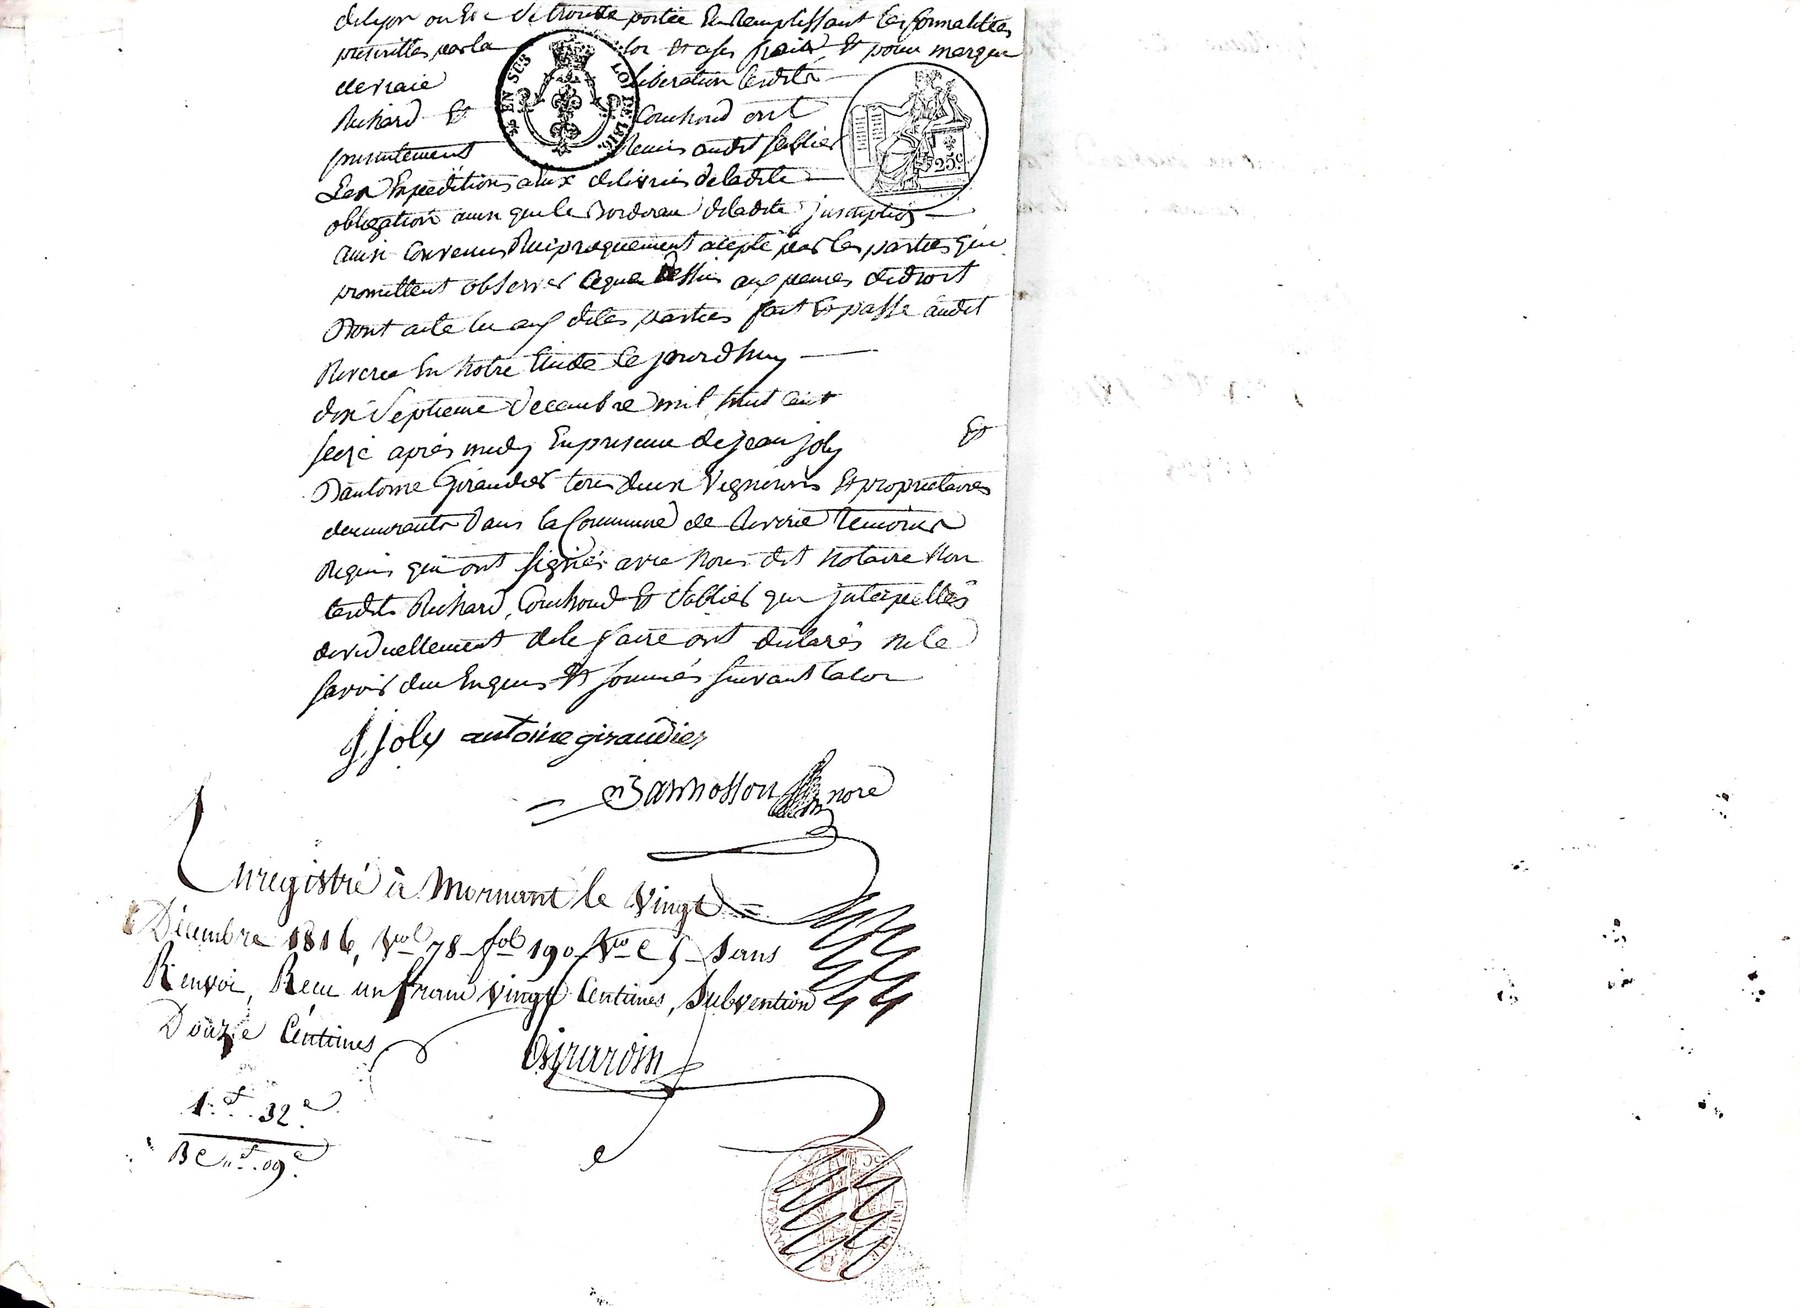 delyon ou Elle se trouve portée En Remplissant les formalités
prescrittes par la loi et a ses frais Et pour marque
de vraie libération lesdits
Richard Et Couchoud ont
presentement Remis audit Sablier
Les Expéditions a eux delivrés deladite
obligation ainsi que le Bordereau deladite inscription
ainsi Convenu Reciproquement accepté par les parties qui
promettent observer ce que dessus aux peines de droit
Dont acte lu aux dites parties fait Et passé audit
Riverie En Notre Etude le jourd'huy
dix Septieme Decembre mil huit cent
seize après midy En presence de jean joly Et
D'antoine Giraudier tous deux Vignerons Et proprietaires
demeurants Dans la Commune de Riverie temoins
Requis qui ont signés avec Nous dit Notaire Non
lesdits Richard, Couchoud Et Sablier qui interpellés
dividuellement de le faire ont declarés ne le
savoir du Enquis Et sommés suivant la loi
J. joly antoine giraudier
nore
Enregistré à Mornant le Vingt
Décembre 1816, Vol 78 fol 190 Vo C 5 Sans
Renvoi, Recu un franc vingt Centimes, Subvention
Douze Centimes
Girardin
1.f. 32c.
EN SUS LOI DE 1816.
25c